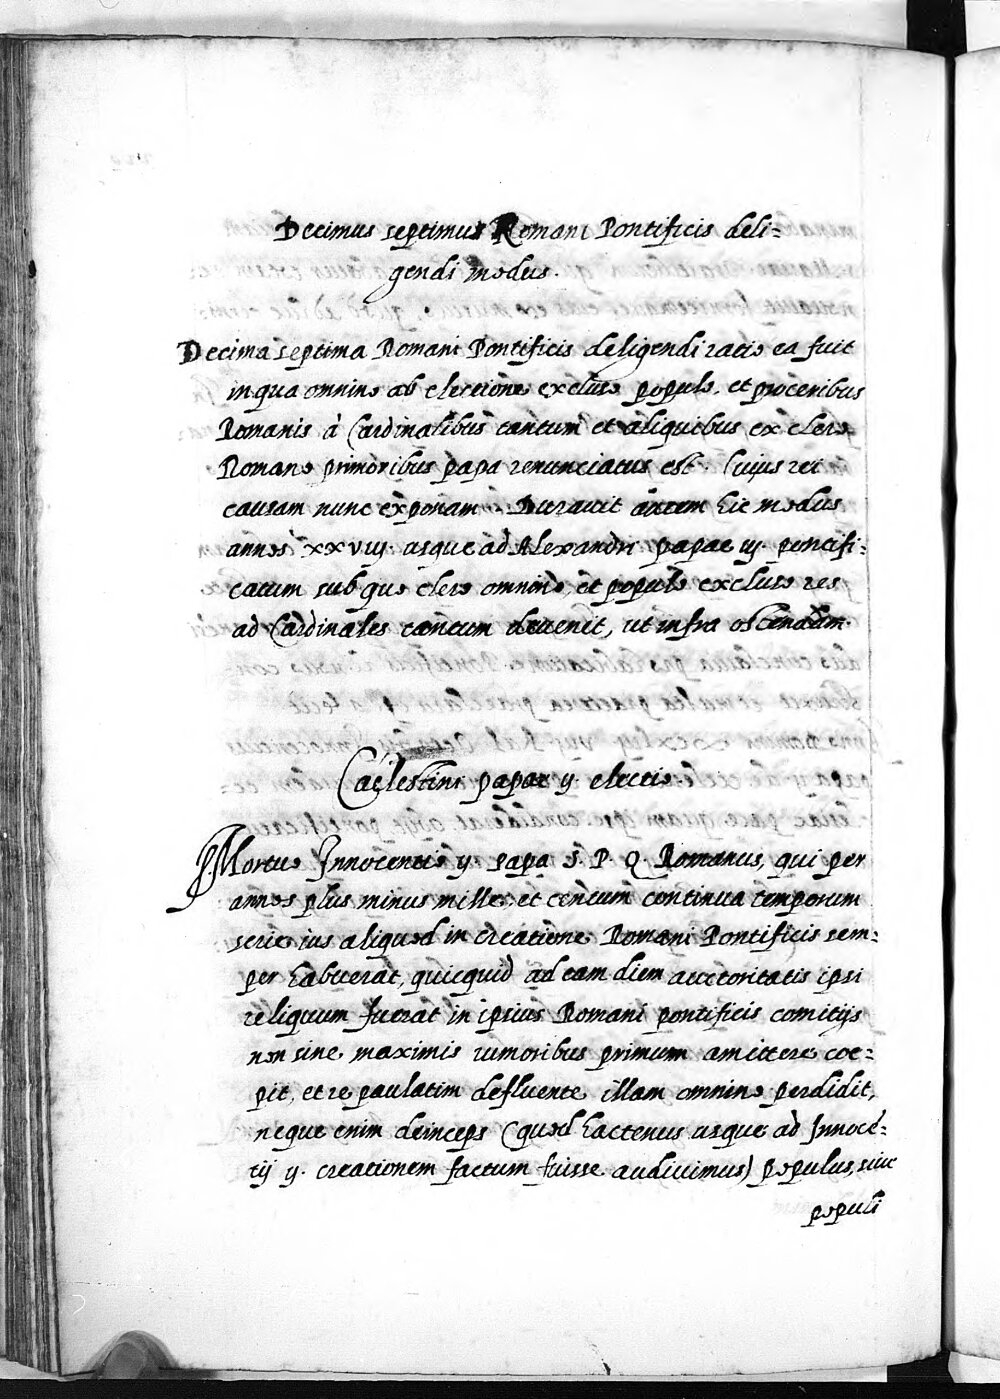 Decimus septimus Romani Pontificis deli=
gendi modus.
Decima septima Romani Pontificis deligendi ratio ea fuit
in qua omnino ab electione excluso populo, et proceribus
Romanis à Cardinalibus tantum et aliquibus ex clero
Romano primoribus papa renunciatus est. Cuius rei
causam nunc exponam. Durauit autem hic modus
annos xxviij. usque ad Alexandri papae iij. pontifi=
catum sub quo clero omnino, et populo excluso res
ad Cardinales tantum deuenit, ut infra ostendam.
Caelestini papae ij. electio.
Mortuo Innocentio ij. papa S. P. Q. Romanus, qui per
annos plus minus mille, et centum continua temporum
serie ius aliquod in creatione Romani Pontificis sem=
per habuerat, quicquid ad eam diem auctoritatis ipsi
reliquum fuerat in ipsius Romani pontificis comitijs
non sine maximis rumoribus primum amittere coe=
pit, et re paulatim defluente illam omnino perdidit,
neque enim deinceps (quod hactenus usque ad Innocē=
tij ij. creationem factum fuisse audiuimus) populus, siue
populi